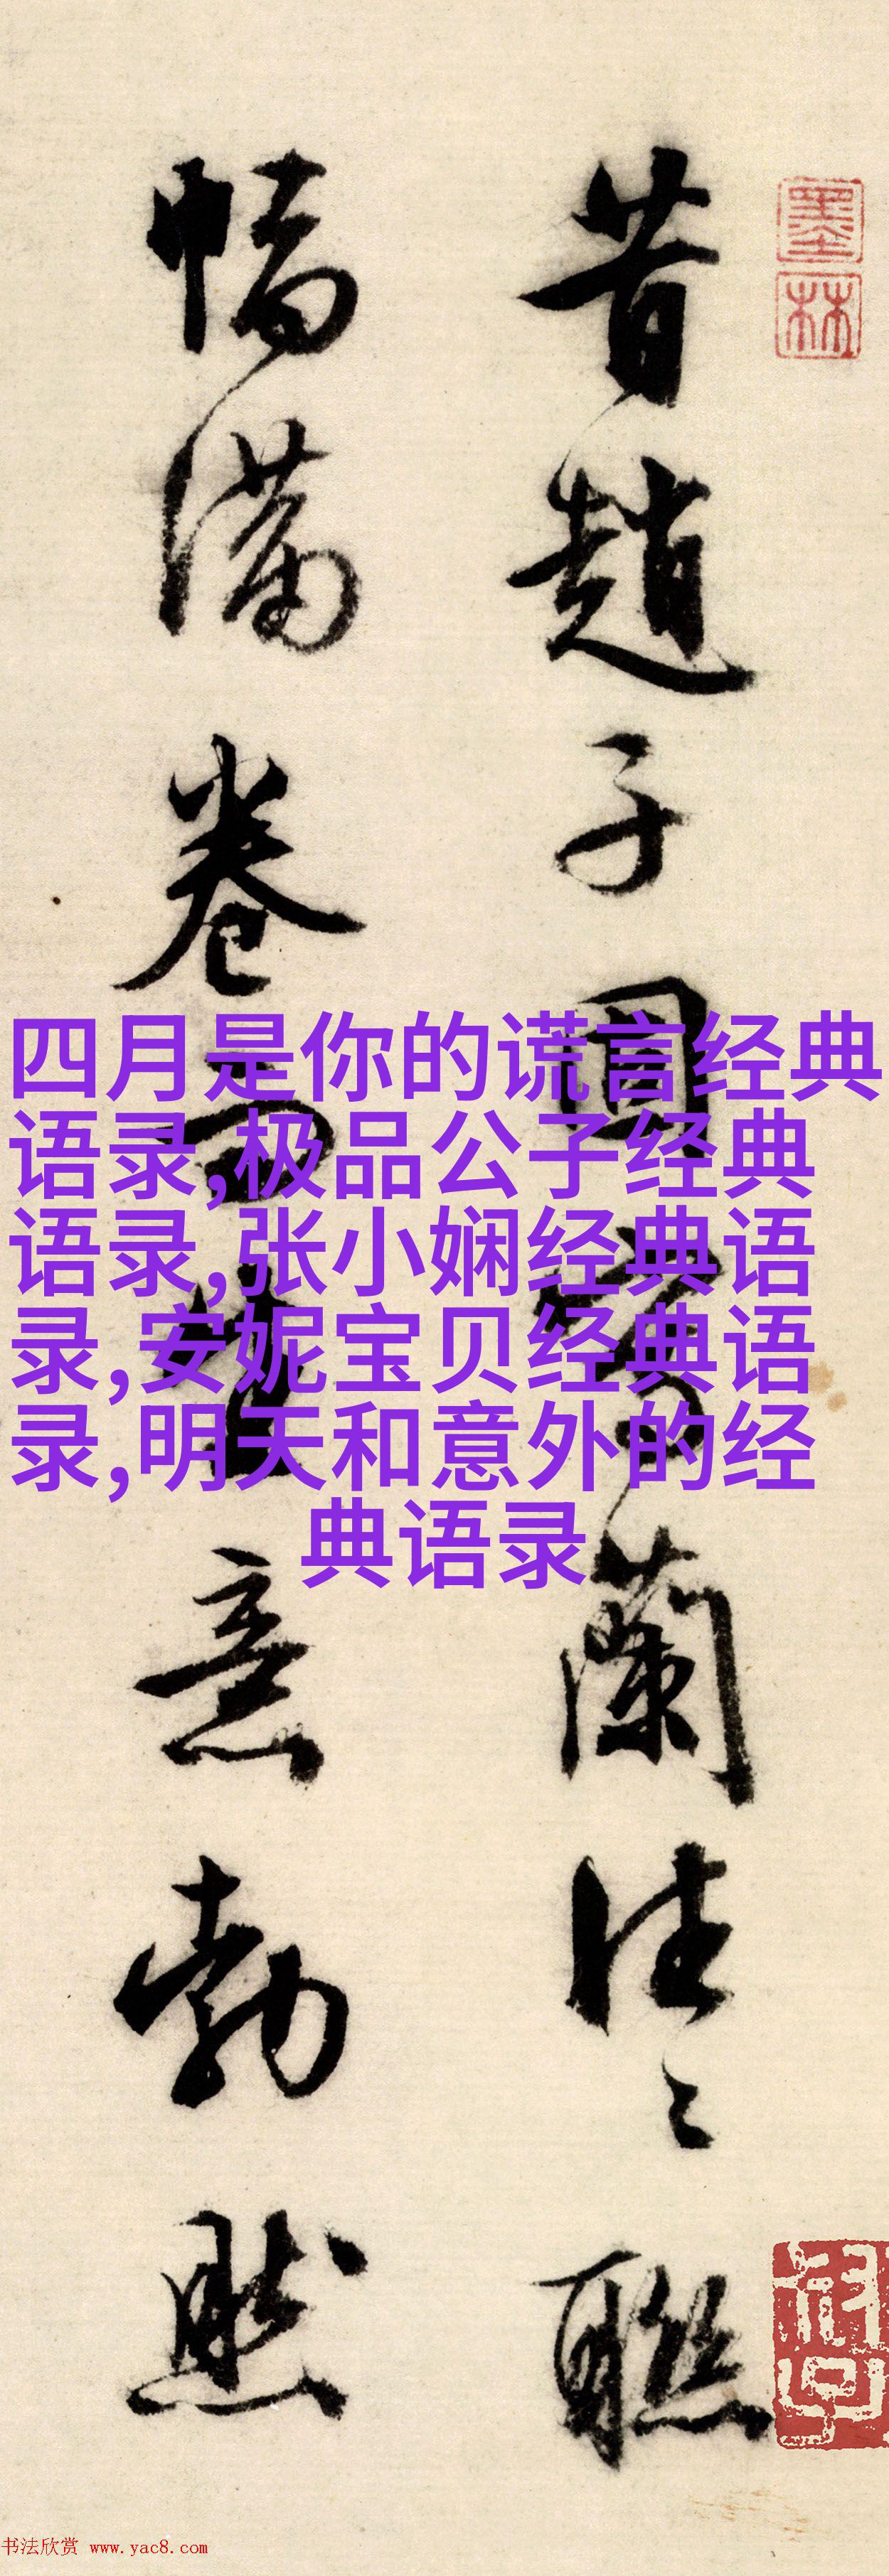 昔趙子固寫蘭往〻聯
幅滿卷而生意勃然
墨林
四月是你的谎言经典
语录,极品公子经典
语录,张小娴经典语
录,安妮宝贝经典语
录,明天和意外的经
典语录
书法欣赏 www.yac8.com